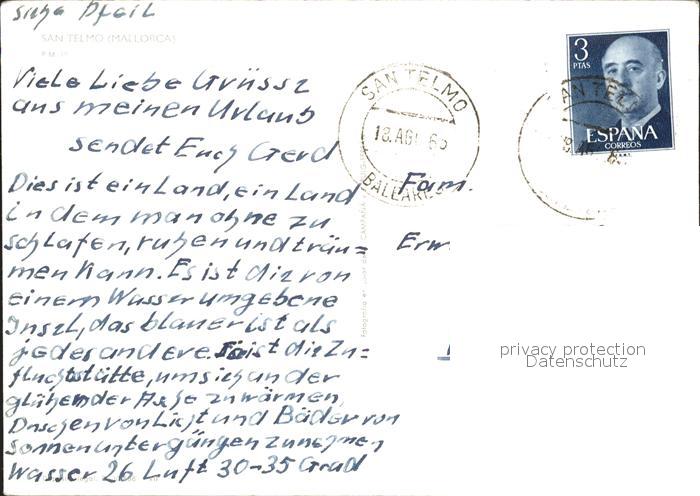 siehe Pfeil
SAN TELMO (MALLORCA)
Viele Liebe Grüsse
aus meinen Urlaub
sendet Euch Gerd
Dies ist ein Land, ein Land
in dem man ohne zu
schlafen, ruhen und träu=
men kann. Es ist die von
einem Wasser umgebene
Insel, das blauer ist als
jedes andere. Sie ist die Zu=
fluchtstätte, um sich an der
glühender Asche zu wärmen,
Duschen von Licht und Bäder von
Sonnenuntergängen zu nehmen
Wasser 26 Luft 30-35 Grad
SAN TELMO
18. AGI. 65
BALEARES
3
PTAS
ESPAÑA
CORREOS
SAN TELMO
Fam.
Erw
privacy protection
Datenschutz